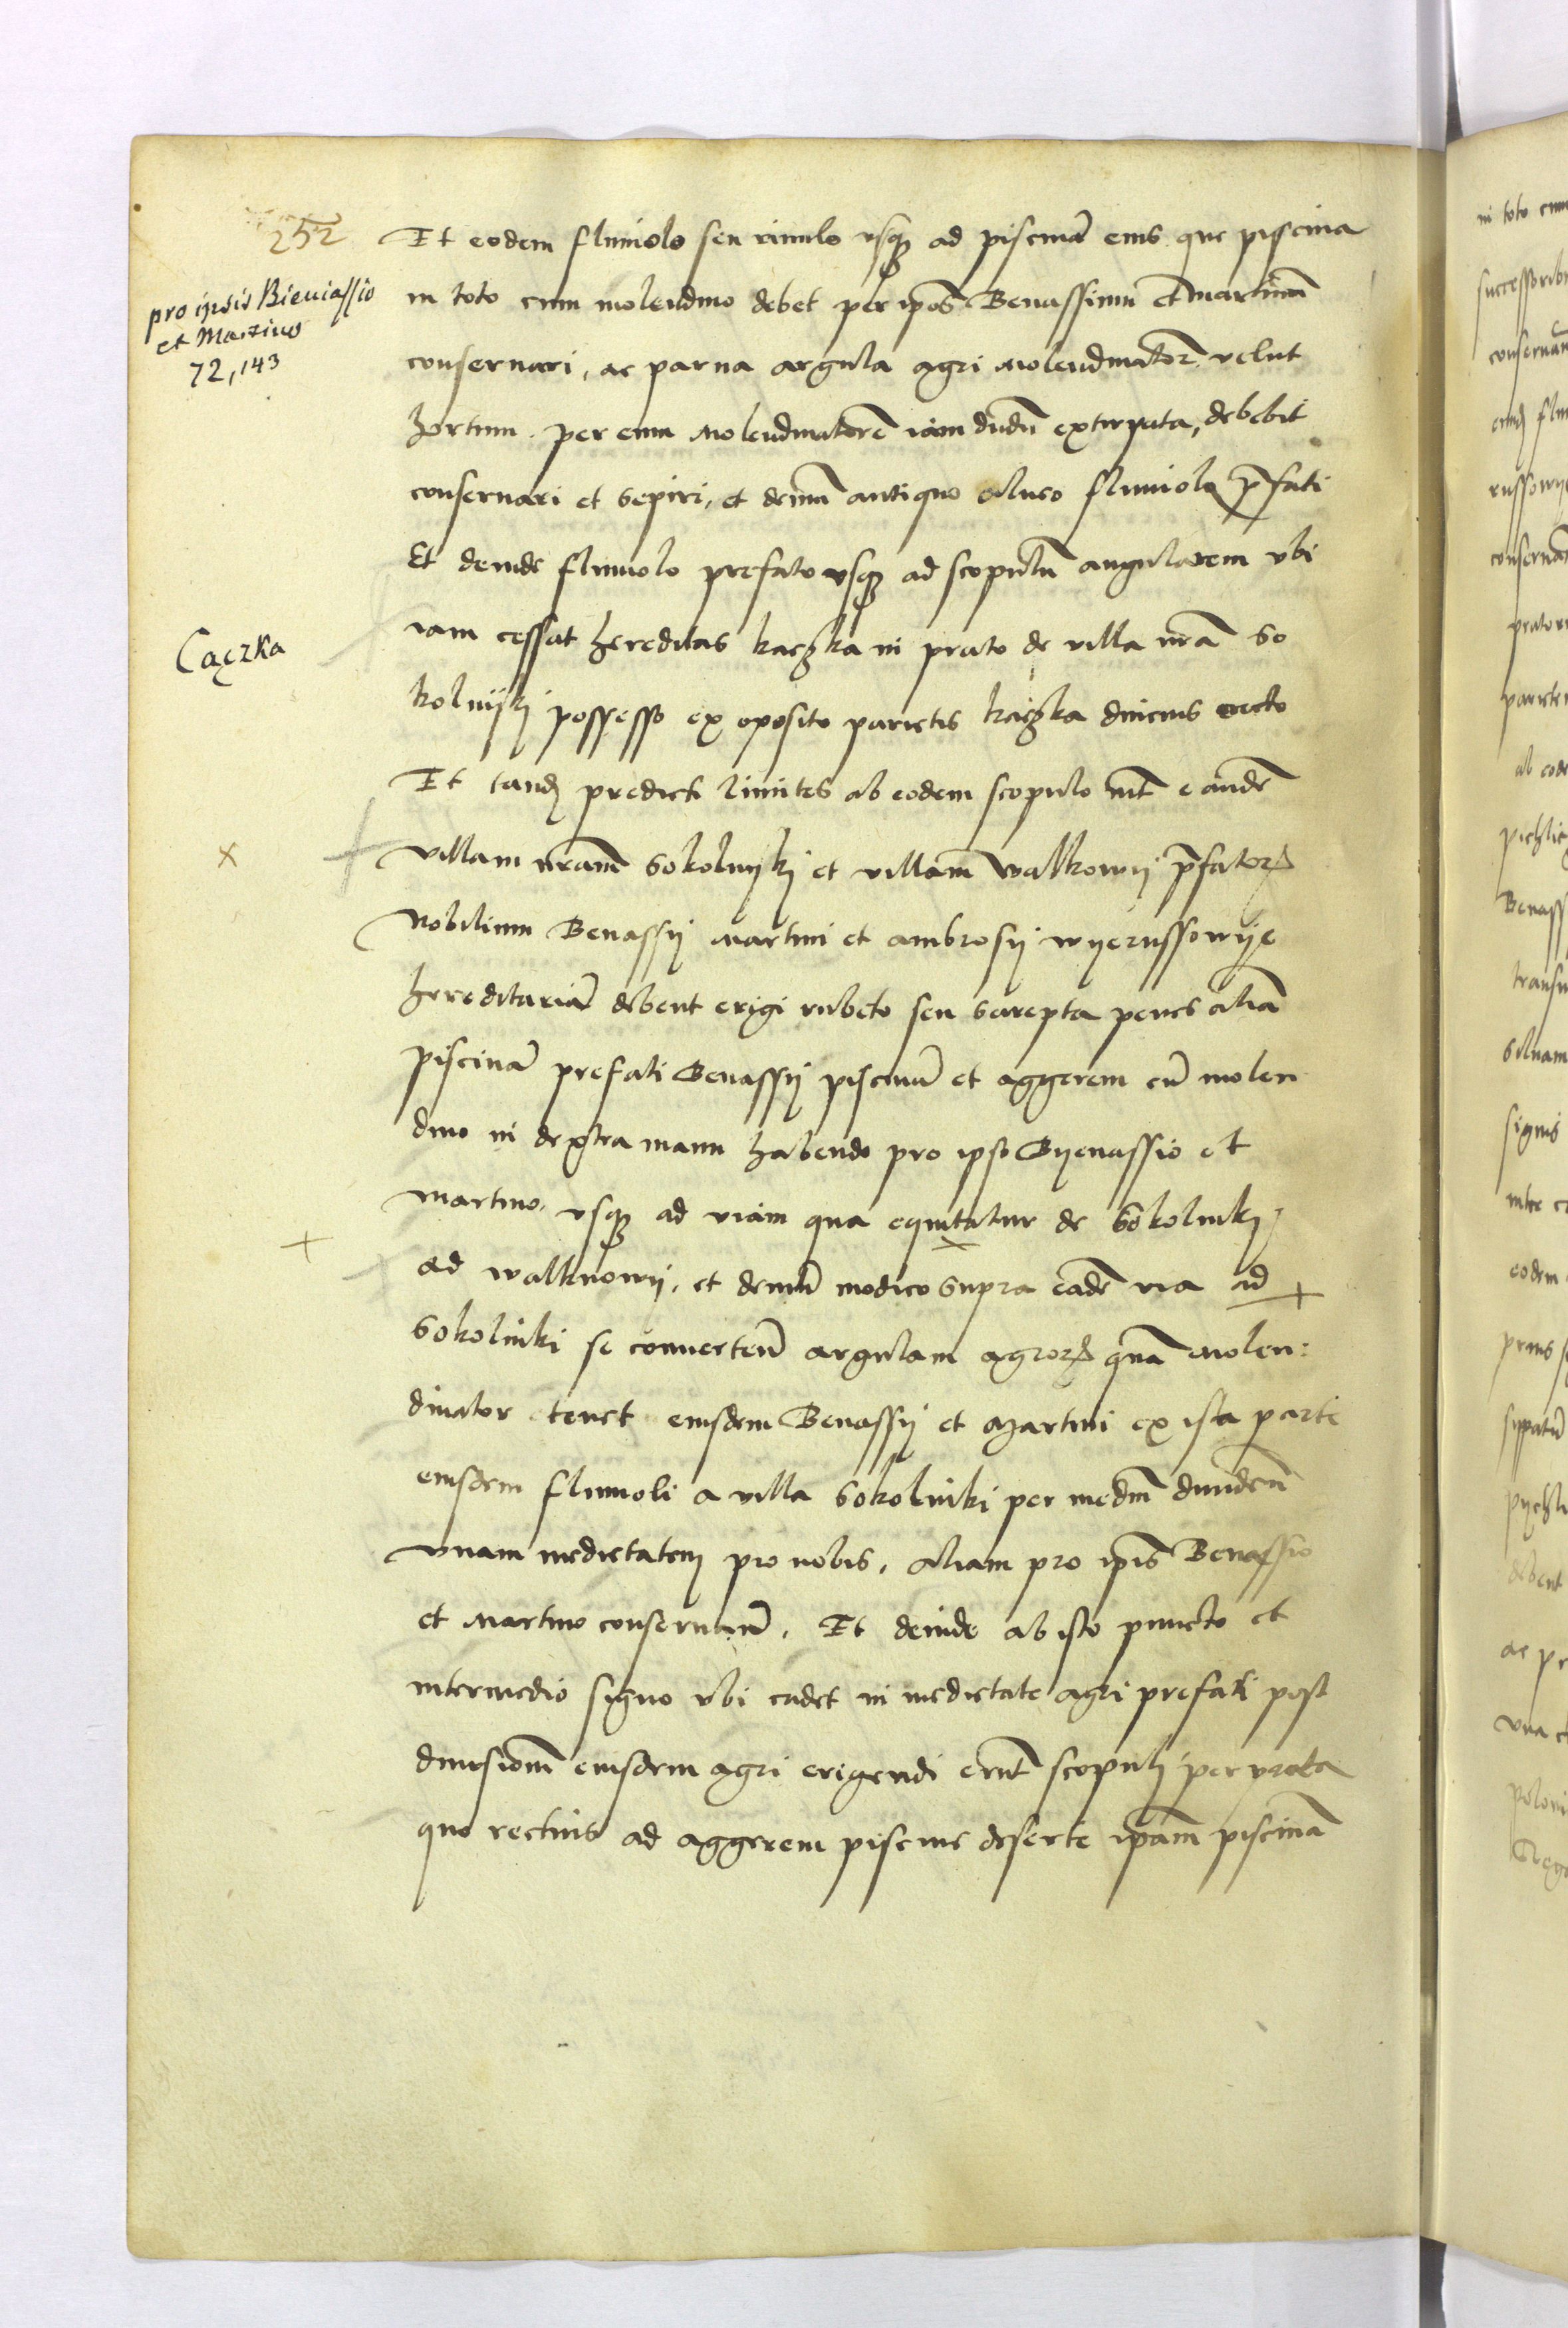 252
pro ipsis Bieniassio
et Martino
72, 143
Et eodem fluuiolo seu riuulo usqꝫ ad piscinā eius que piscina
in toto cum molendino debet per ipos Benassium et martinū
conseruari, ac parua argula agri Molendinatoꝝ velut
hortum per eum Molendinatorē iam dudū extirpata, debebit
conseruari et sepiri, et demū antiquo alueo fluuiolo p̄fati
Et deinde fluuiolo prefato usqꝫ ad scopulū angularem vbi
Caczka
iam cessat hereditas kaczka in prato de villa nrā So
kolnijkj possesso ex oposito parietis kaczka
Et tandē predicti limites ab eodem scopulo int̄ eandē
x
villam nram̄ Sokolnijkj et villam walkowij p̄fatoꝝ
Nobilium Benassij Martini et ambrosij wyerussowije
hereditariā debent erigi rubeto seu sarepta penes aliā
piscinā prefati Benassij piscinā et aggerem cū molen
dino in dextra manu habendo pro ipso Byenassio et
martino usqꝫ ad viam qua equitatur de Sokolnikj
ad walknowij, et demū modico supra eadē via ad
Sokolniki se conuertenn̄ argulam agroꝝ quā Molen:
dinator tenet eiusdem Benassij et Martini ex ista parte
eiusdem fluuioli a villa Sokolniki per mediū diuidenn̄
vnam medietatem pro nobis, aliam pro ipis Benassio
et Martino conseruann̄. Et deinde ab isto puncto et
intermedio signo vbi cadet in medietate agri prefati post
diuisionē eiusdem agri erigendi erūt scopuli per prata
quo rectius ad aggerem piscine deserte ipam̄ piscinā